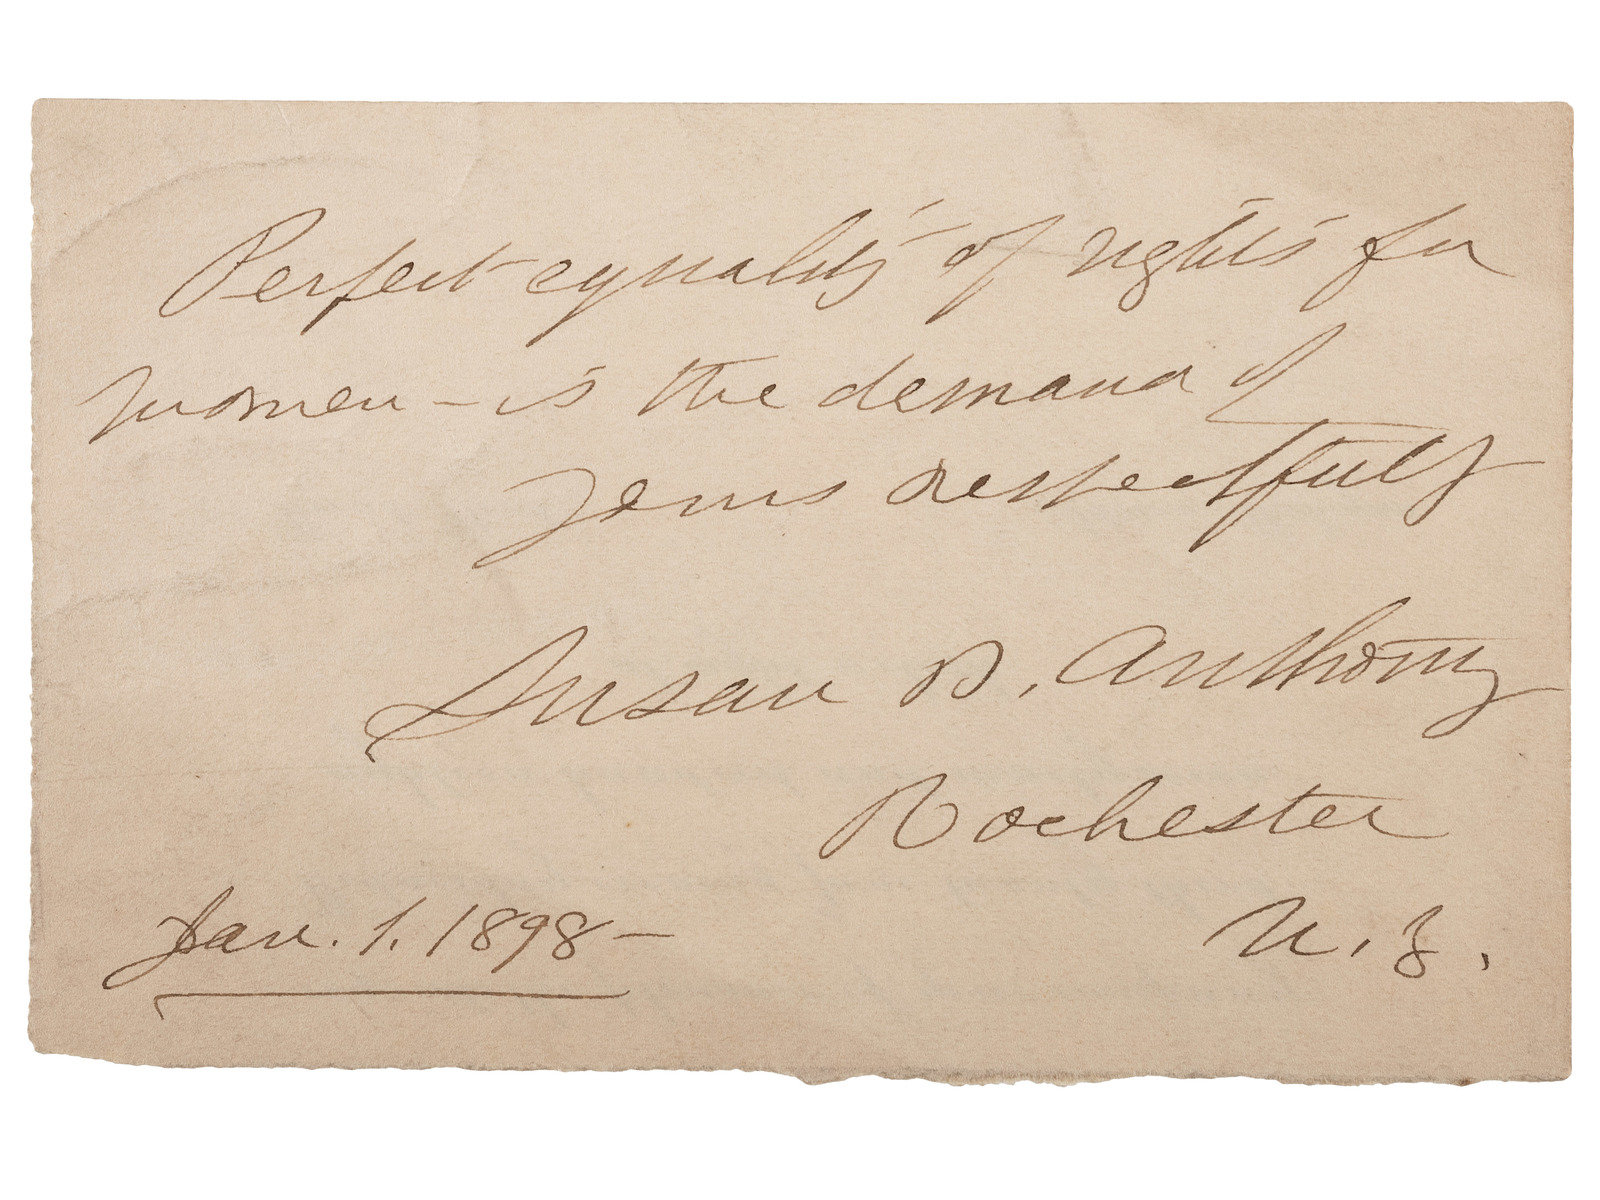 Perfect equality of rights for
women – is the demand of
yours respectfully
Susan B. Anthony
Rochester
N. Y.
Jan. 1. 1898 –